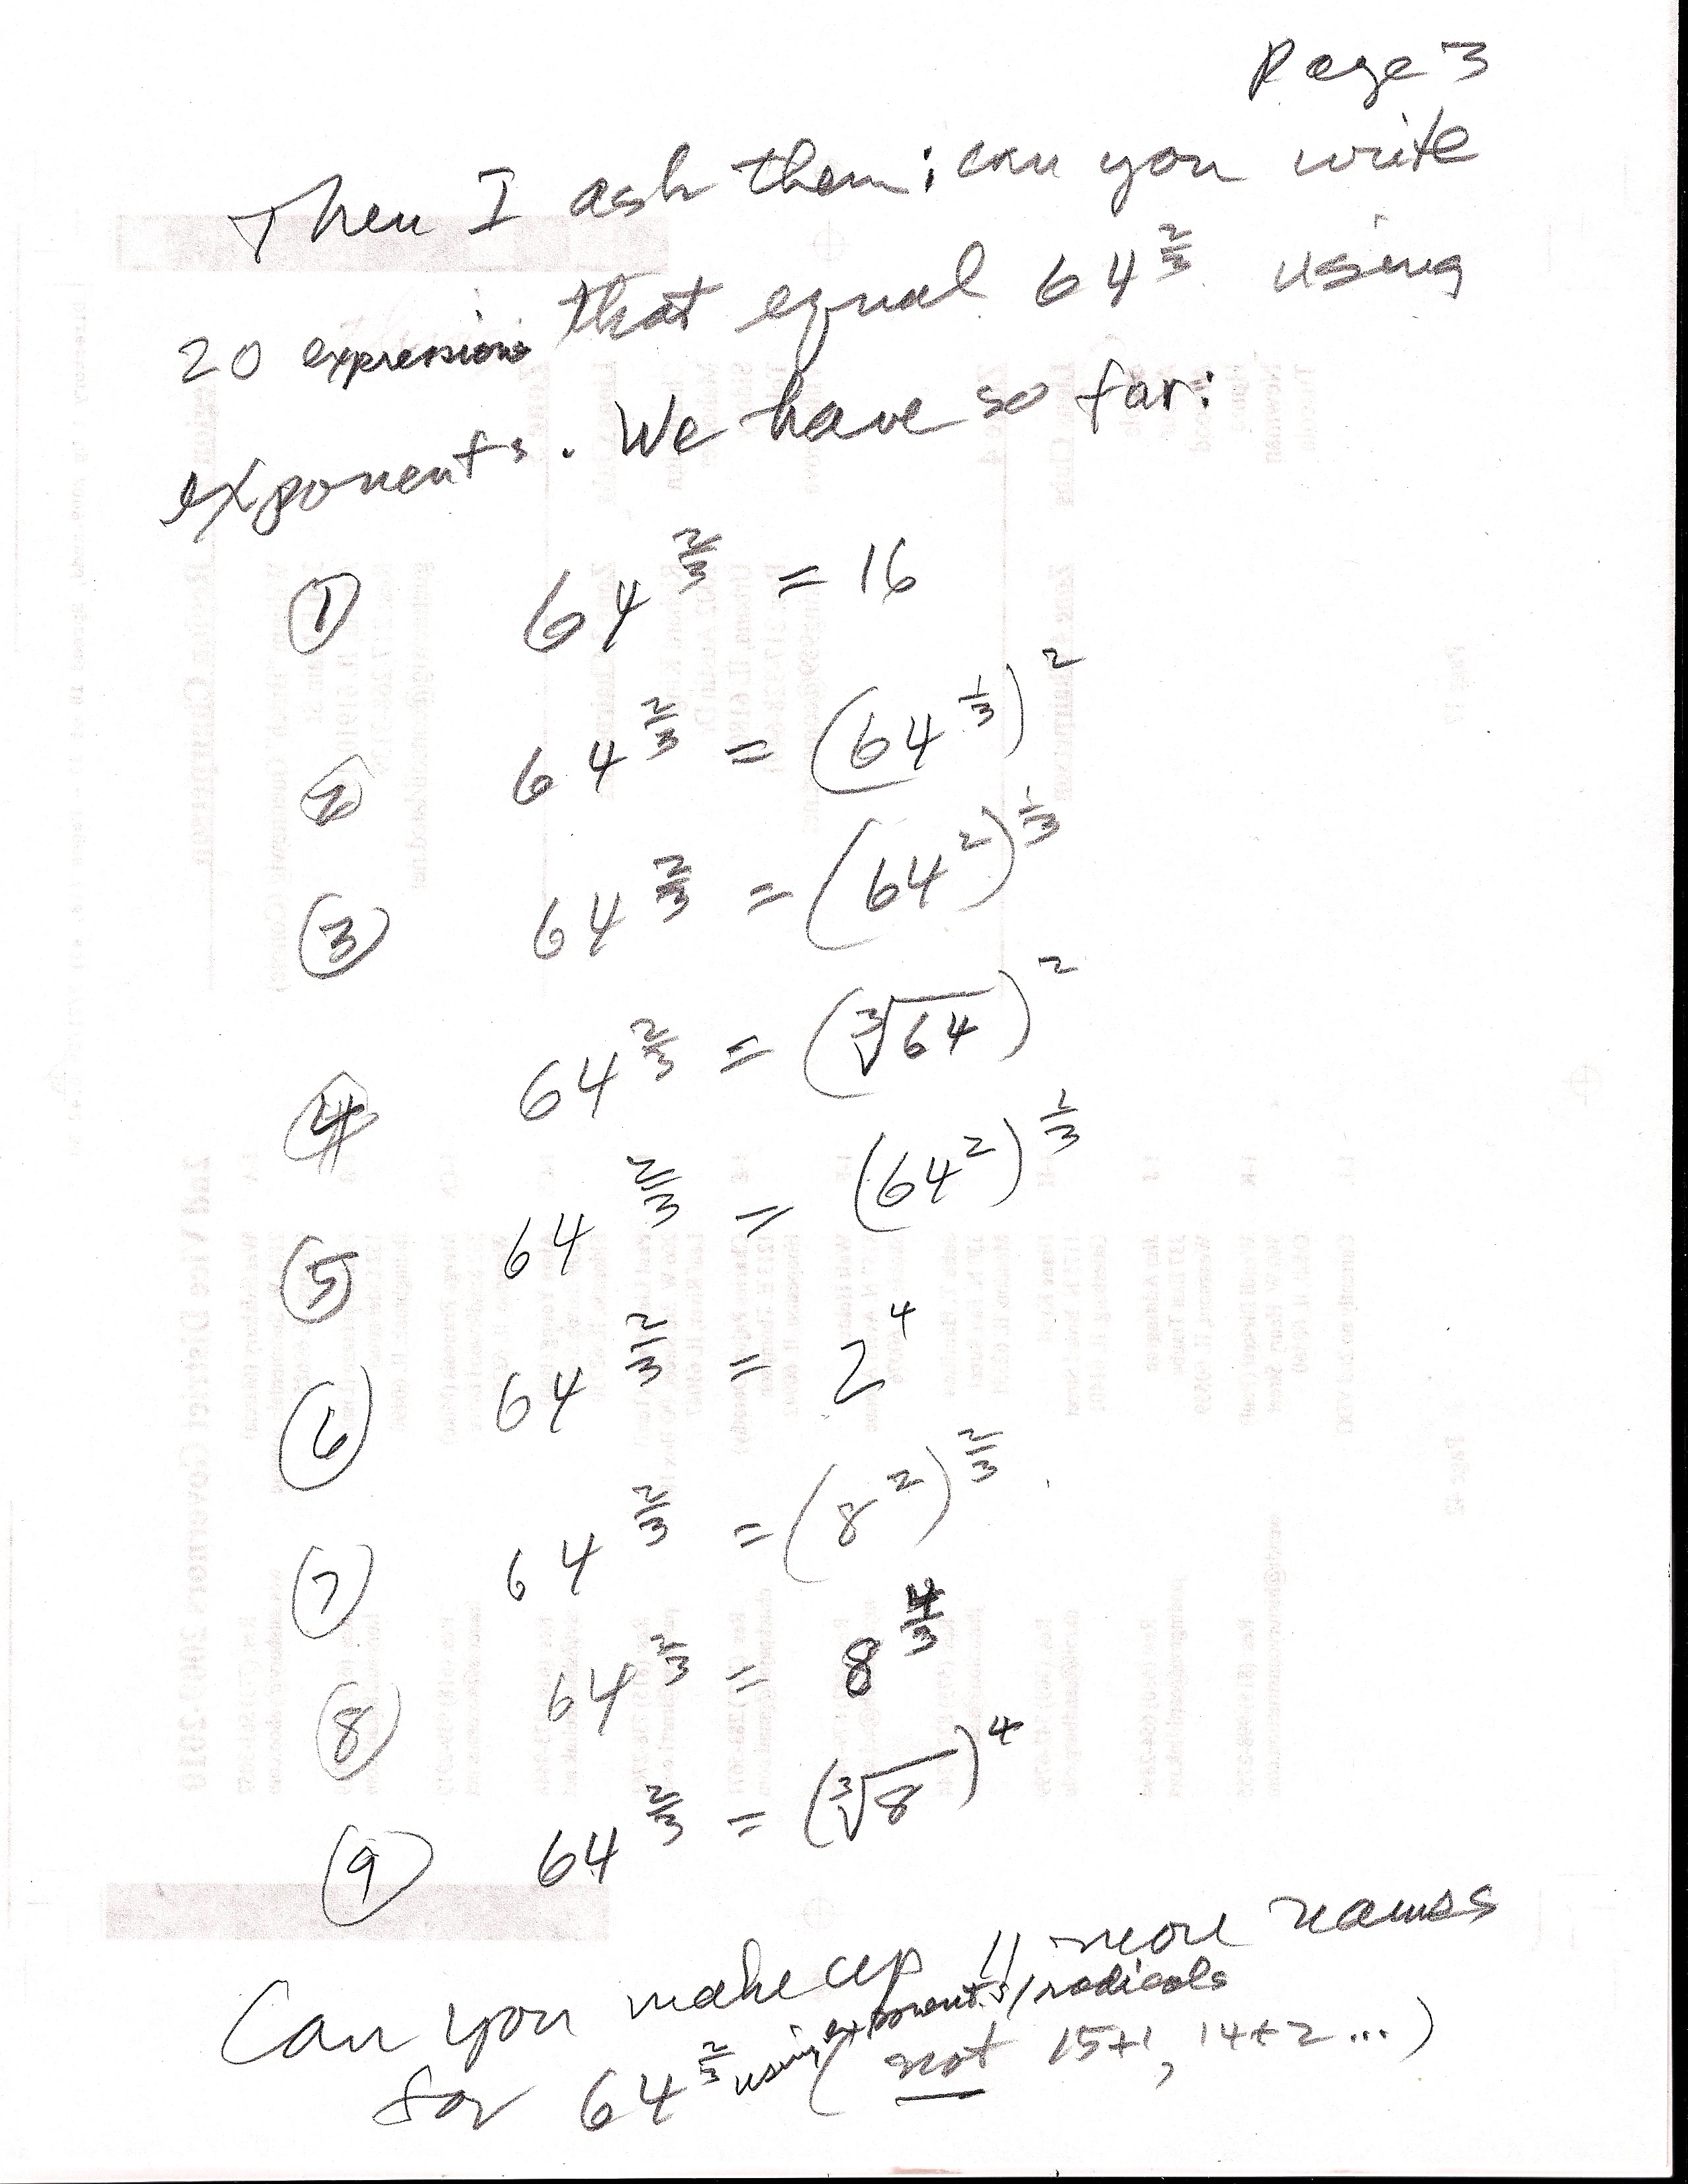 Page 3
Then I ask them: can you write
20 expressions that equal 64^(2/3) using
exponents. We have so far:
① 64^(2/3) = 16
② 64^(2/3) = (64^(1/3))^2
③ 64^(2/3) = (64^2)^(1/3)
④ 64^(2/3) = (∛64)^2
⑤ 64^(2/3) = (64^2)^(1/3)
⑥ 64^(2/3) = 2^4
⑦ 64^(2/3) = (8^2)^(2/3)
⑧ 64^(2/3) = 8^(4/3)
⑨ 64^(2/3) = (∛8)^4
Can you make up 11 more names
for 64^(2/3) using exponents/radicals
(not 15+1, 14+2 ...)